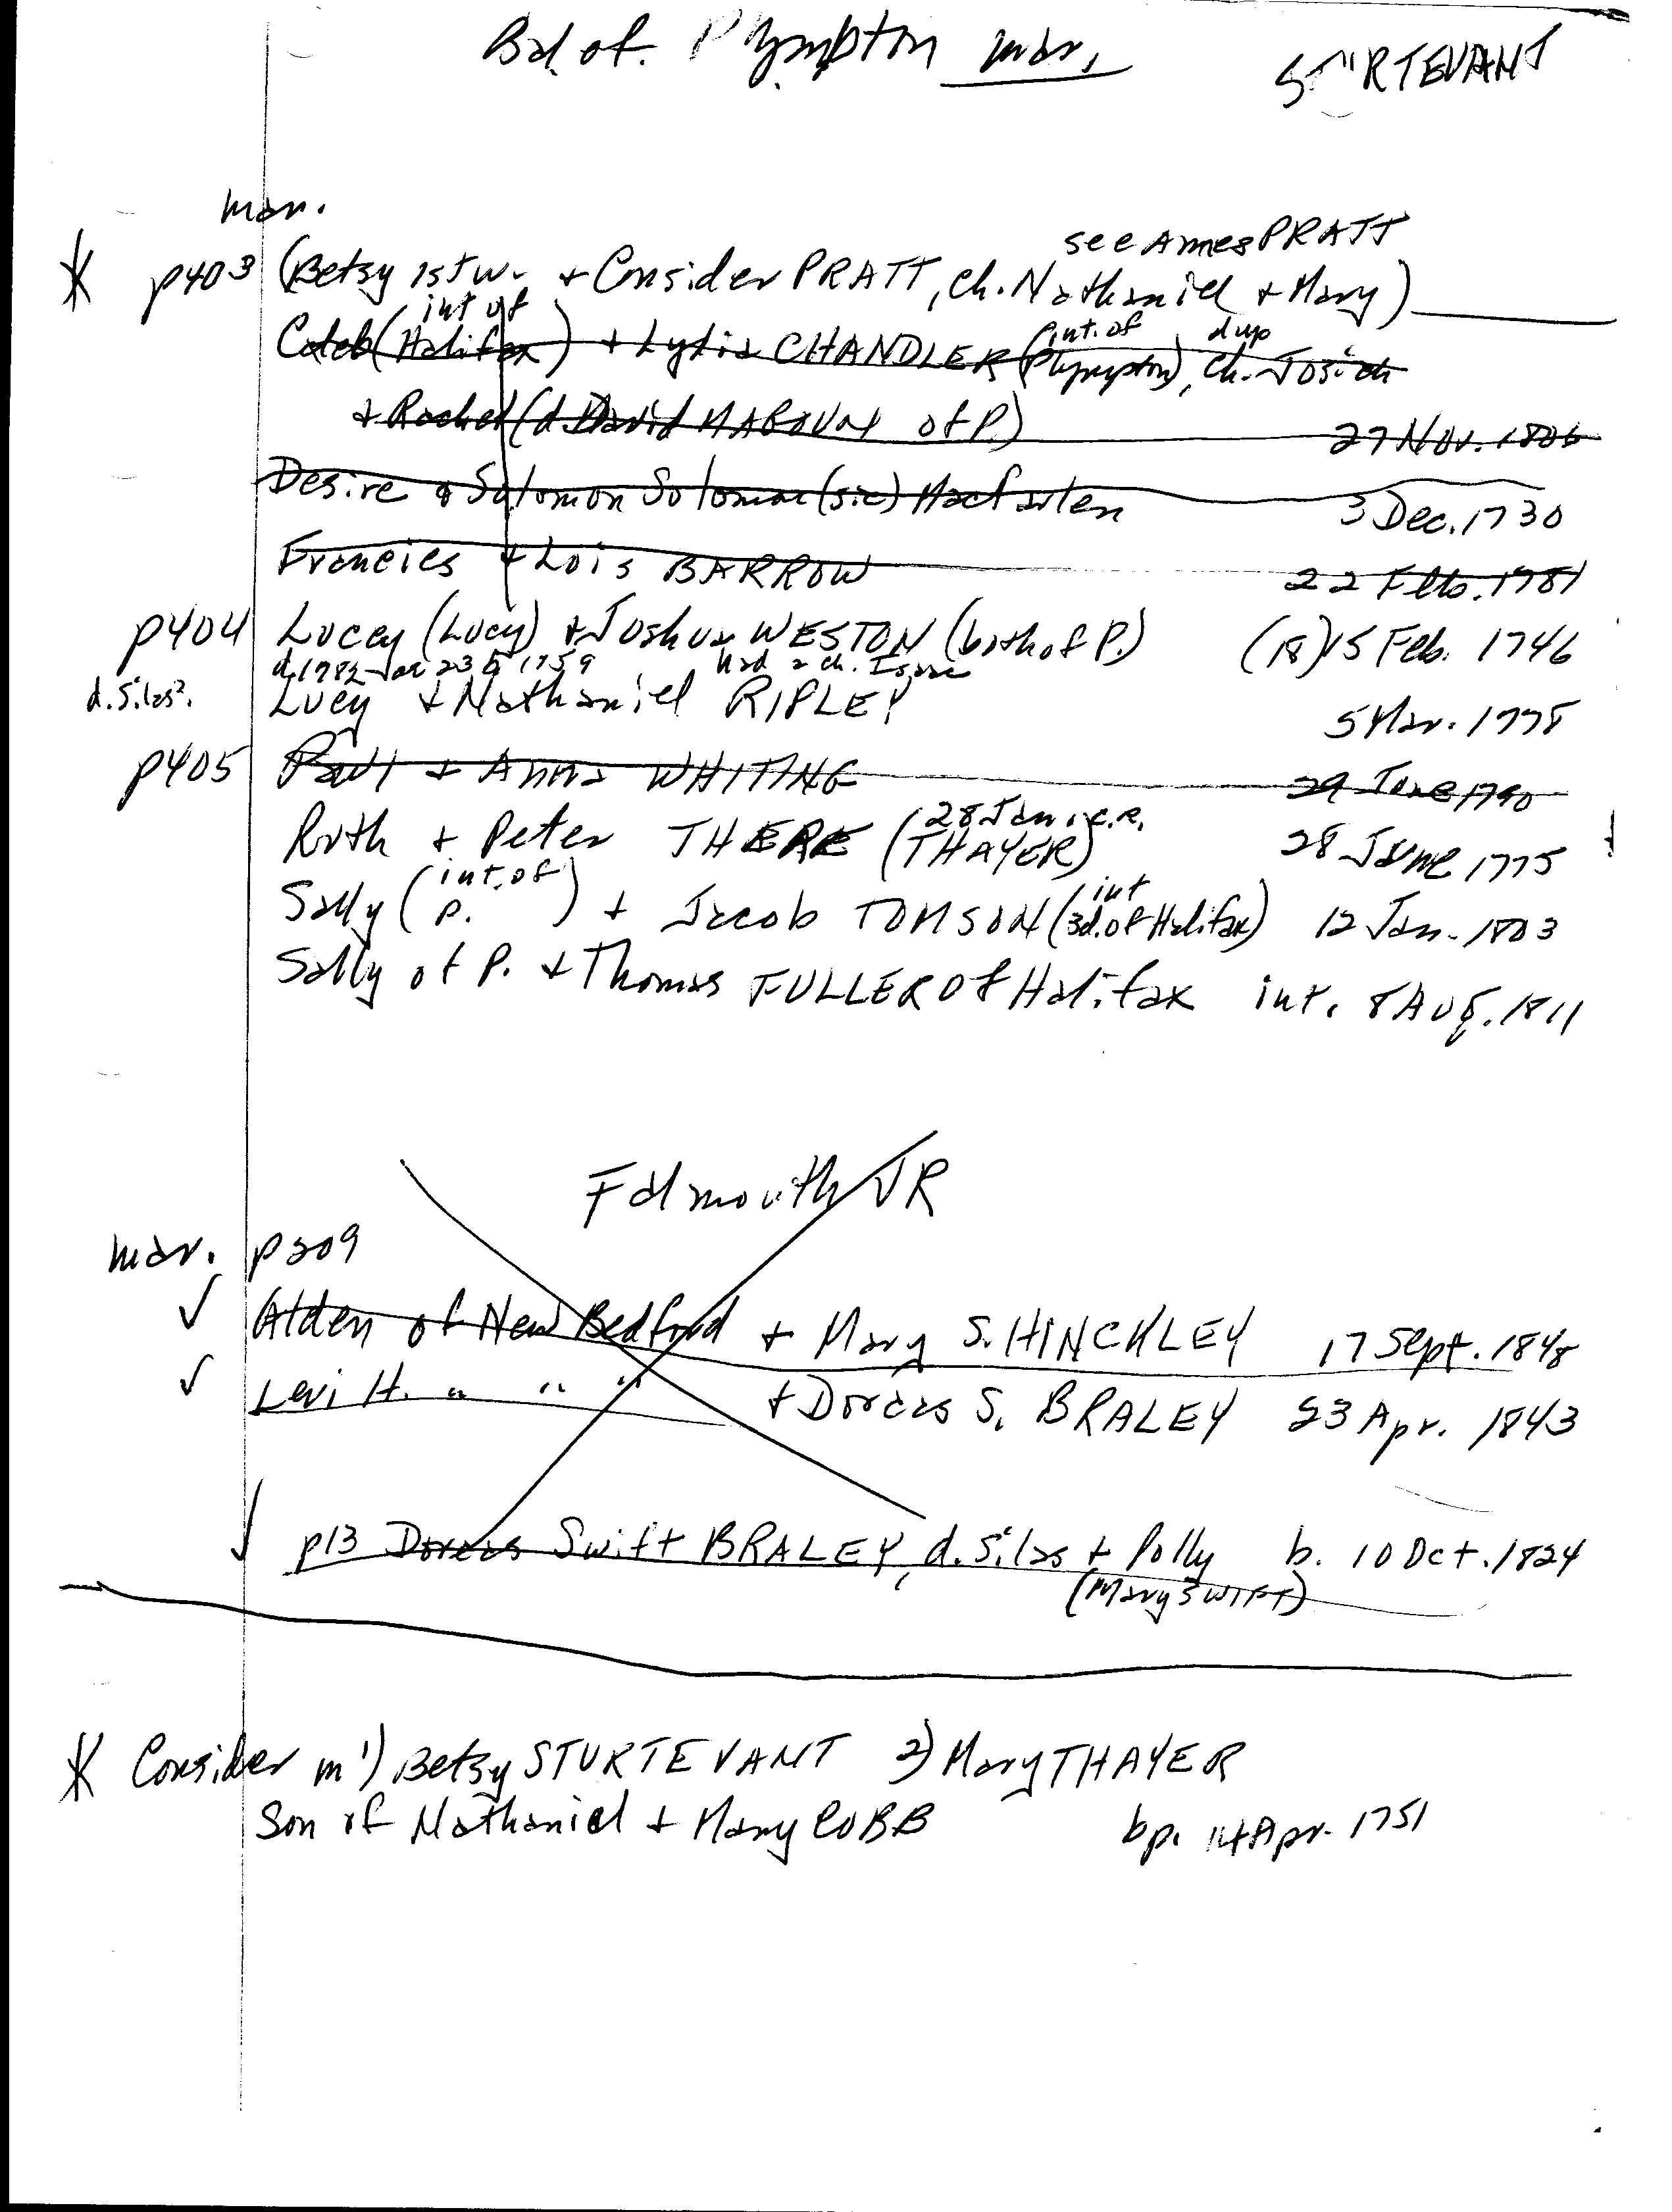 Bd. of. Plympton mar. STURTEVANT
mar.
see Ames PRATT
* p403 (Betsy 1st w. + Consider PRATT, ch. Nathaniel + Mary)
int of int. of dup
Caleb (Halifax) + Lydia CHANDLER (Plympton), ch. Josiah
+ Rachel (d. David of P.) 27 Nov. 1806
Desire & Solomon Solomac (sic) Macfarlen 3 Dec. 1730
Francies + Lois BARROW 22 Feb. 1781
p404 Lucey (Lucy) + Joshua WESTON (both of P.) (18) 15 Feb. 1746
d. 1782 1759 had a ch. Isaac
d. Silas? Lucy + Nathaniel RIPLEY 5 Mar. 1778
p405 Paul + Anna WHITING 29 June 1790
28 Jan. C.R.
Ruth + Peter THERE (THAYER) 28 June 1775
int. of int
Sally (P.) + Jacob TOMSON (3d. of Halifax) 12 Jan. 1803
Sally of P. + Thomas FULLER of Halifax int. 8 Aug. 1811
Falmouth VR
mar. p209
✓ Alden of New Bedford + Mary S. HINCKLEY 17 Sept. 1848
✓ Levi H. " " " + Dorcas S. BRALEY 23 Apr. 1843
✓ p13 Dorcas Swift BRALEY, d. Silas + Polly b. 10 Oct. 1824
(Mary SWIFT)
* Consider m 1) Betsy STURTEVANT 2) Mary THAYER
Son of Nathaniel + Mary COBB bp. 14 Apr. 1751